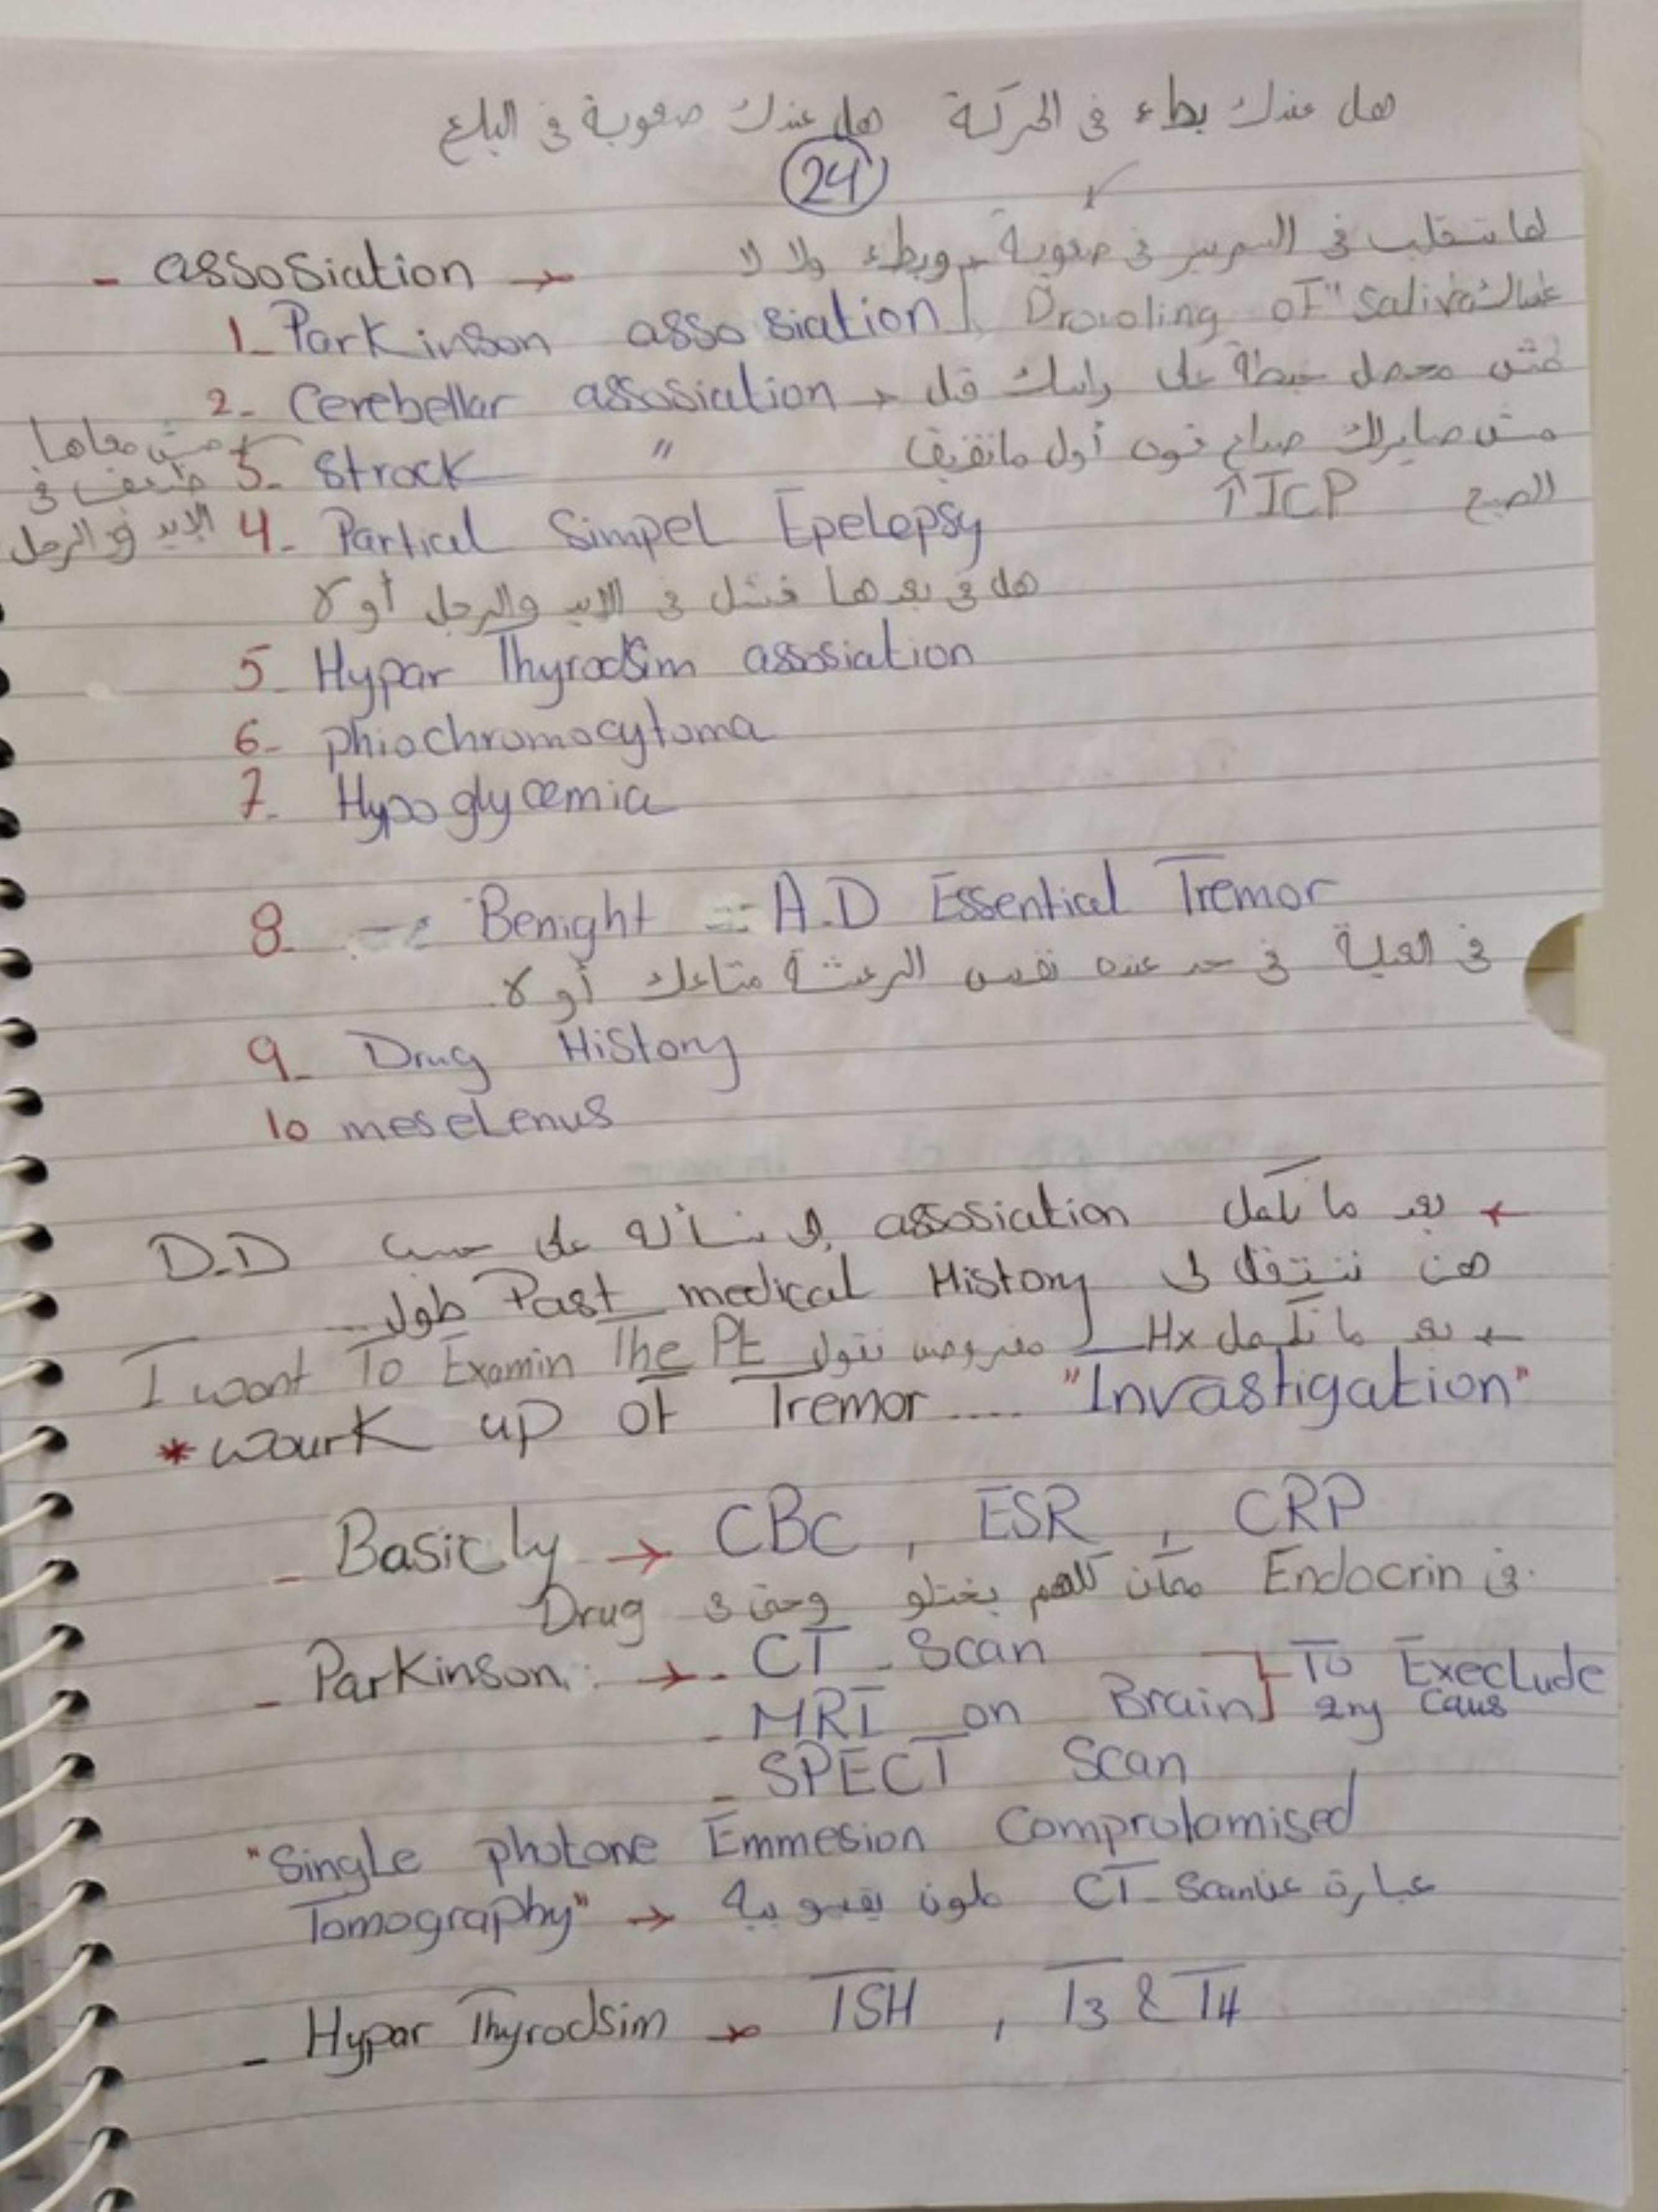 هل عندك بطء في الحركة هل عندك صعوبة في البلع
24
لما تتقلب في السرير في صعوبة وبطء ولا لا
- assosiation →
1- Parkinson assosiation Drooling of "saliva
2- Cerebellar assosiation → قبل راسك على خبطة محصل مش
مش معاها ضعف في الايد و الرجل
3- Strock " مش صايرلك صداع أول ماتفيق
الصبح ↑ICP
4- Partial Simpel Epelepsy
هل في بعدها فشل في الايد والرجل أو لا
5- Hypar Thyrodsim assosiation
6- phiochromocytoma
7- Hypoglycemia
8- Benight = A.D Essential Tremor
في العيلة في حد عنده نفس الرعشة متاعك أو لا
9- Drug History
10 meselenus
← بعد ما نكمل assosiation نسأله على حسب D.D
هن ننتقل لى Past medical History طول
← بعد ما نكمل Hx مفروض نقول I want To Examin The Pt
* wourk up of Tremor .... "Invastigation"
- Basicly → CBC , ESR , CRP
في Endocrin ممكن كلهم يختلو وحتى في Drug
- Parkinson : → - CT - Scan
- MRI on Brain } To Execlude any Caus
- SPECT Scan
"Single photone Emmesion Comprotomised
Tomography" → عبارة عن CT-Scan ملون
- Hypar Thyrodsim → TSH , T3 & T4